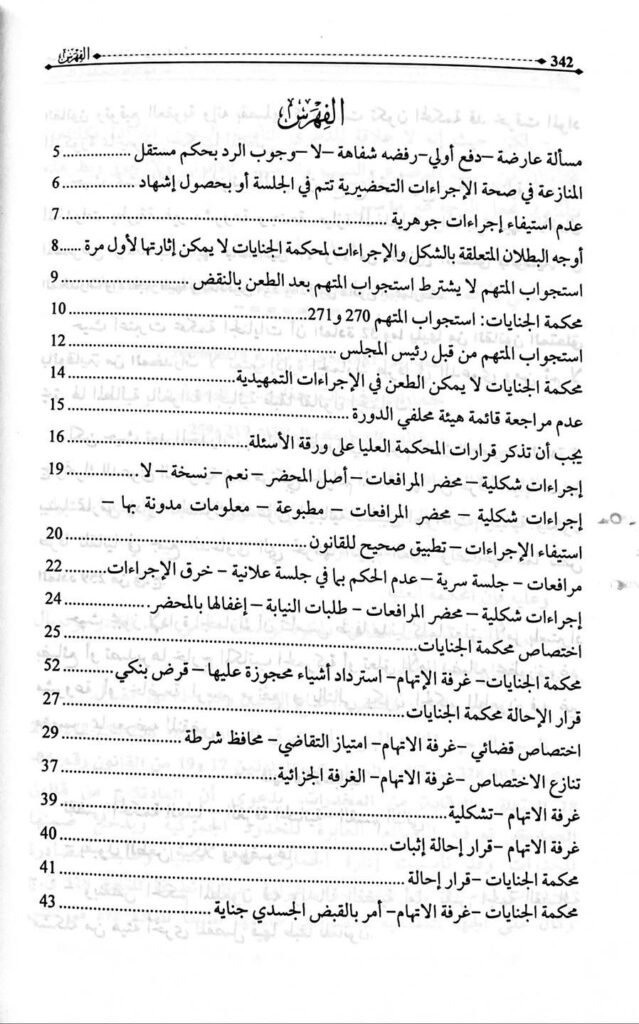 342 الفهرس
الفهرس
مسألة عارضة –دفع أولي– رفضه شفاهة –لا– وجوب الرد بحكم مستقل ............... 5
المنازعة في صحة الإجراءات التحضيرية تتم في الجلسة أو بحصول إشهاد ............... 6
عدم استيفاء إجراءات جوهرية ............... 7
أوجه البطلان المتعلقة بالشكل والإجراءات لمحكمة الجنايات لا يمكن إثارتها لأول مرة ...... 8
استجواب المتهم لا يشترط استجواب المتهم بعد الطعن بالنقض ............... 9
محكمة الجنايات: استجواب المتهم 270 و271 ............... 10
استجواب المتهم من قبل رئيس المجلس ............... 12
محكمة الجنايات لا يمكن الطعن في الإجراءات التمهيدية ............... 14
عدم مراجعة قائمة هيئة محلفي الدورة ............... 15
يجب أن تذكر قرارات المحكمة العليا على ورقة الأسئلة ............... 16
إجراءات شكلية – محضر المرافعات – أصل المحضر – نعم – نسخة – لا ............... 19
إجراءات شكلية – محضر المرافعات – مطبوعة – معلومات مدونة بها –
استيفاء الإجراءات – تطبيق صحيح للقانون ............... 20
مرافعات – جلسة سرية – عدم الحكم بما في جلسة علانية – خرق الإجراءات ............... 22
إجراءات شكلية – محضر المرافعات – طلبات النيابة – إغفالها بالمحضر ............... 24
اختصاص محكمة الجنايات ............... 25
محكمة الجنايات – غرفة الإتهام – استرداد أشياء محجوزة عليها – قرض بنكي ............... 52
قرار الإحالة محكمة الجنايات ............... 27
اختصاص قضائي – غرفة الاتهام – امتياز التقاضي – محافظ شرطة ............... 29
تنازع الاختصاص – غرفة الاتهام – الغرفة الجزائية ............... 37
غرفة الاتهام – تشكلية ............... 39
غرفة الاتهام – قرار إحالة إثبات ............... 40
محكمة الجنايات – قرار إحالة ............... 41
محكمة الجنايات – غرفة الاتهام – أمر بالقبض الجسدي جناية ............... 43